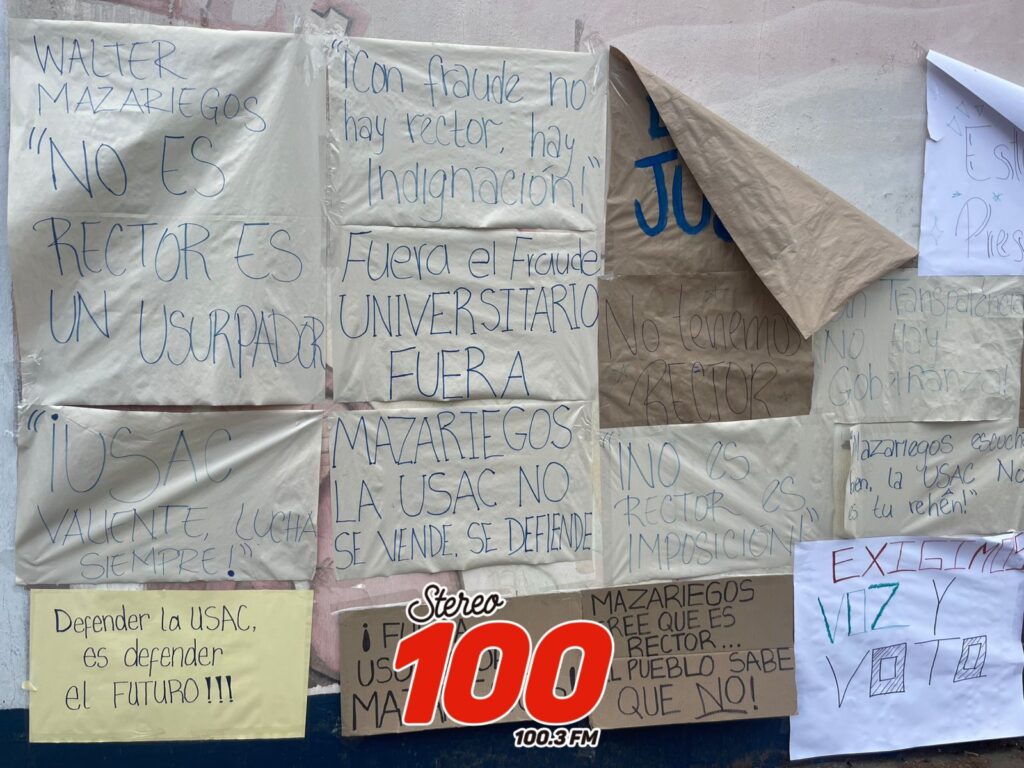 WALTER
MAZARIEGOS
"NO ES
RECTOR ES
UN USURPADOR
"¡Con fraude no
hay rector, hay
Indignación!"
Fuera el Fraude
UNIVERSITARIO
FUERA
JU
No tenemos
RECTOR
Transparencia
No Hay
Gobernanza!
"¡USAC
VALIENTE, LUCHA
SIEMPRE!"
MAZARIEGOS
LA USAC NO
SE VENDE, SE DEFIENDE
"¡NO es
RECTOR es
IMPOSICIÓN!
Mazariegos escucha
bien, la USAC No
es tu rehén!"
EXIGIMOS
VOZ Y
VOTO
Defender la USAC,
es defender
el FUTURO!!!
¡
MAZARIEGOS
CREE QUE ES
RECTOR...
EL PUEBLO SABE
QUE NO!
Stereo
100
100.3 FM